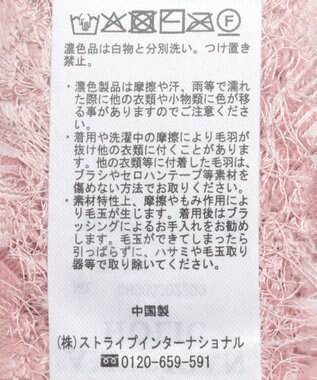 濃色品は白物と分別洗い。つけ置き
禁止。
・濃色製品は摩擦や汗、雨等で濡れ
た際に他の衣類や小物類に色が移
る事がありますのでご注意くださ
い。
・着用や洗濯中の摩擦により毛羽が
抜け他の衣類に付く事があります。
他の衣類等に付着した毛羽は、ブ
ラシやセロハンテープ等素材を
傷めない方法でお取りください。
・素材特性上、摩擦やもみ作用によ
り毛玉が生じます。着用後はブラ
ッシングによるお手入れをお勧め
します。毛玉ができてしまったら
引っぱらずに、ハサミや毛玉取り
器等で取り除いてください。
中国製
(株)ストライプインターナショナル
0120-659-591